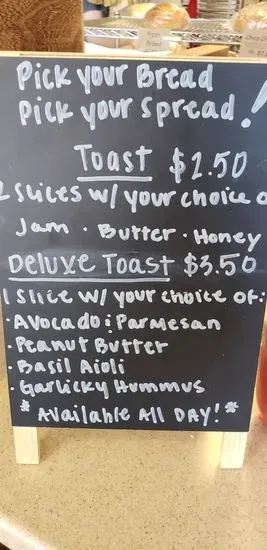 Pick your Bread
Pick your spread!
Toast $2.50
2 Slices w/ your choice o
Jam · Butter · Honey
Deluxe Toast $3.50
1 Slice w/ your choice of:
· Avocado & Parmesan
· Peanut Butter
· Basil Aioli
· Garlicky Hummus
* Available All DAY! *